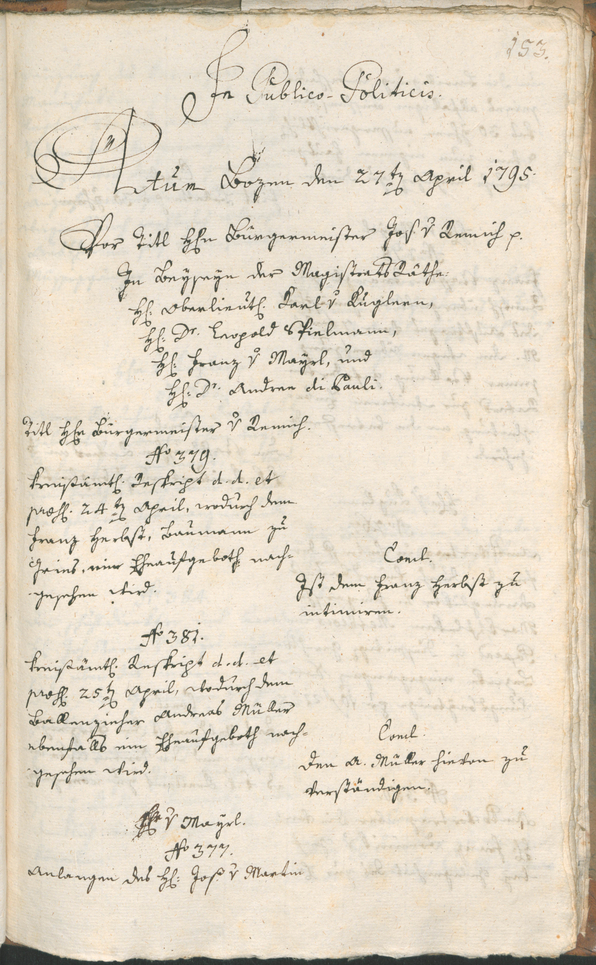 153.
In Publico-Politicis.
Actum Bozen den 27ten April 1795.
Vor Titl Hℓn Bürgermeister Jos. v Remich p.
In Beyseyn der Magistrats Räthe:
Hℓ. Oberlieut. Karl v Kugleen,
Hℓ. Dr. Leopold Spielmann,
Hℓ. Franz v Mayrl, und
Hℓ. Dr. Andree di Pauli.
Titl Hℓn Bürgermeister v Remich.
No 379.
Kreisämtl. Reskript d. d. et
präs. 24ten April, wodurch dem
Franz Herbst, Baumann zu
Gries, ein Eheaufgeboth nach-
gesehen wird.
Concl.
Ist dem Franz Herbst zu
intimiren.
No 381.
Kreisämtl. Reskript d. d. et
präs. 25ten April, wodurch dem
Ballenzieher Andreas Müller
ebenfalls ein Eheaufgeboth nach-
gesehen wird.
Concl.
Den A. Müller hievon zu
verständigen.
Hℓr v Mayrl.
No 377.
Anlangen des Hℓ. Jos. v Martin